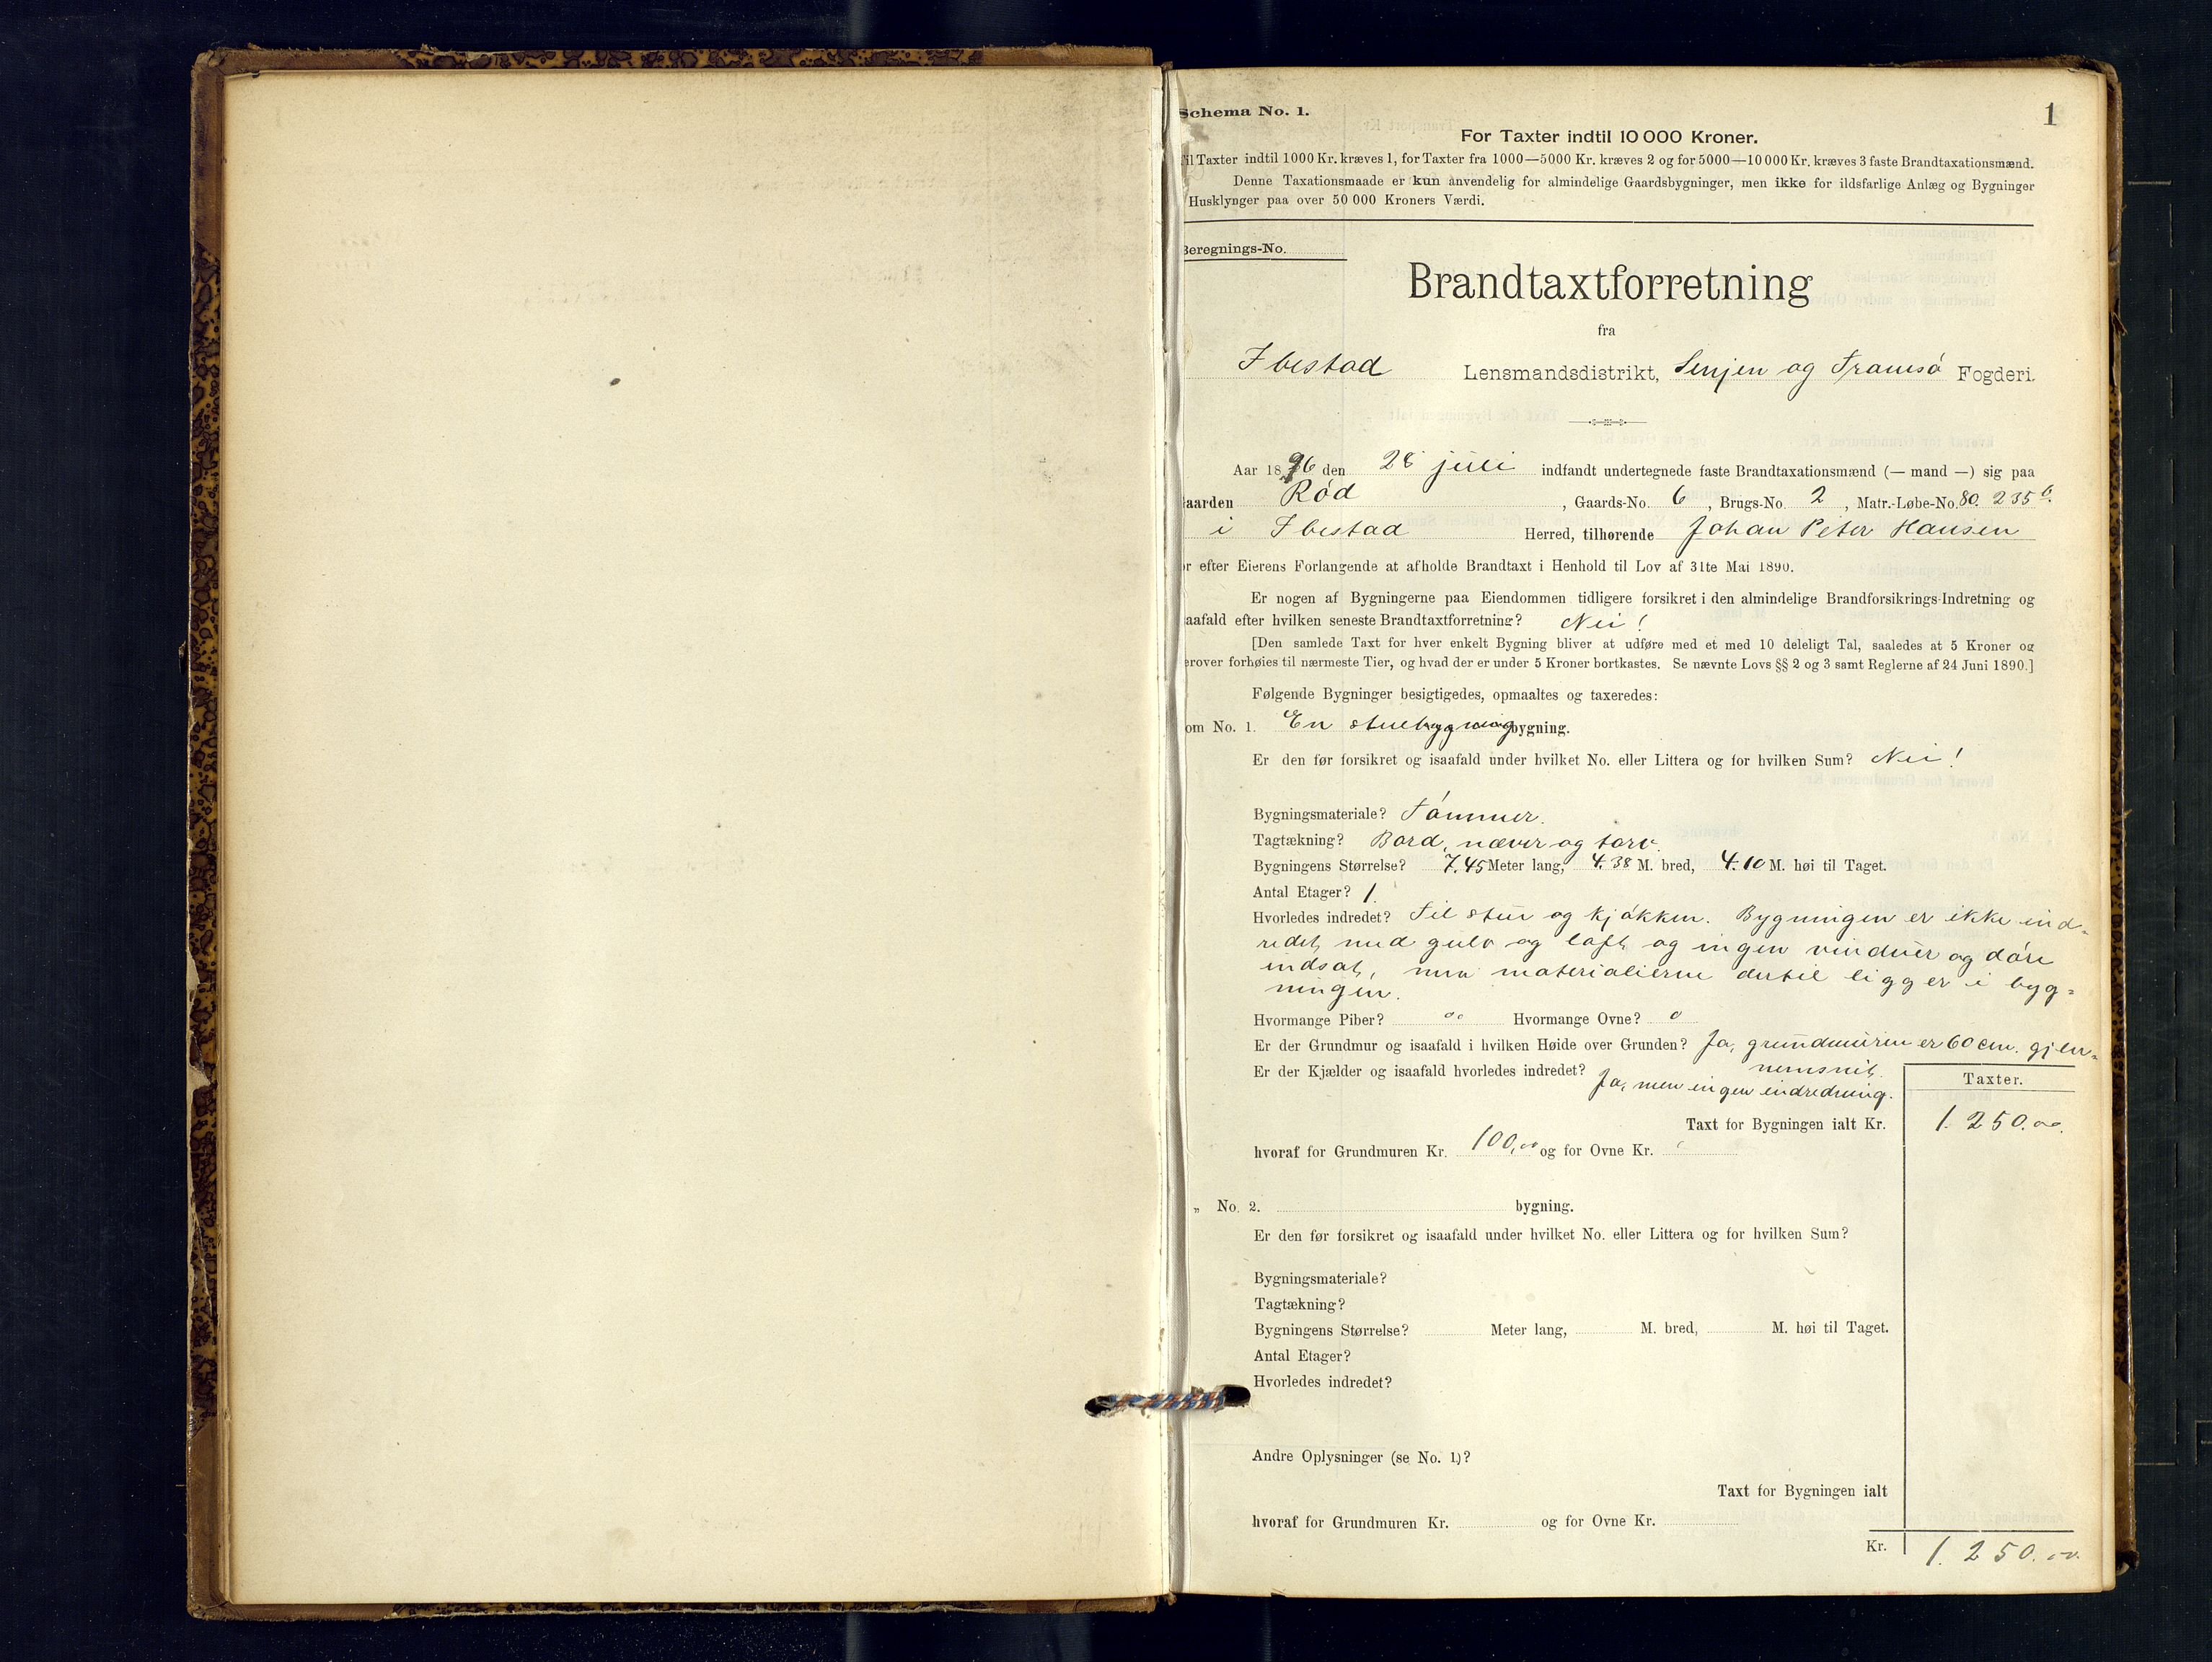 Schema No. 1.
1
For Taxter indtil 10 000 Kroner.
il Taxter indtil 1000 Kr. kræves 1, for Taxter fra 1000—5000 Kr. kræves 2 og for 5000—10 000 Kr. kræves 3 faste Brandtaxationsmænd.
Denne Taxationsmaade er kun anvendelig for almindelige Gaardsbygninger, men ikke for ildsfarlige Anlæg og Bygninger
Husklynger paa over 50 000 Kroners Værdi.
Beregnings-No.
Brandtaxtforretning
fra
Ibestad Lensmandsdistrikt, Senjen og Tromsö Fogderi.
Aar 1896 den 28 juli indfandt undertegnede faste Brandtaxationsmænd (— mand —) sig paa
aarden Röd, Gaards-No. 6, Brugs-No. 2, Matr.-Løbe-No. 80. 235 b.
i Ibestad Herred, tilhørende Johan Peter Hansen
r efter Eierens Forlangende at afholde Brandtaxt i Henhold til Lov af 31te Mai 1890.
Er nogen af Bygningerne paa Eiendommen tidligere forsikret i den almindelige Brandforsikrings-Indretning og
aafald efter hvilken seneste Brandtaxtforretning? Nei!
[Den samlede Taxt for hver enkelt Bygning bliver at udføre med et med 10 deleligt Tal, saaledes at 5 Kroner og
erover forhøies til nærmeste Tier, og hvad der er under 5 Kroner bortkastes. Se nævnte Lovs §§ 2 og 3 samt Reglerne af 24 Juni 1890.]
Følgende Bygninger besigtigedes, opmaaltes og taxeredes:
om No. 1. En stuebygning bygning.
Er den før forsikret og isaafald under hvilket No. eller Littera og for hvilken Sum? Nei!
Bygningsmateriale? Tömmer.
Tagtækning? Bord, næver og torv.
Bygningens Størrelse? 7.45 Meter lang, 4.38 M. bred, 4.10 M. høi til Taget.
Antal Etager? 1.
Hvorledes indredet? Til stue og kjökken. Bygningen er ikke ind-
redet med gulv og loft og ingen vinduer og döre
indsat, men materialierne dertil ligger i byg=
ningen.
Hvormange Piber? Hvormange Ovne? o
Er der Grundmur og isaafald i hvilken Høide over Grunden? Ja, grundmuren er 60 cm. gjen-
nemsnit.
Er der Kjælder og isaafald hvorledes indredet? Ja, men ingen indredning.
Taxter.
Taxt for Bygningen ialt Kr. 1.250.00.
hvoraf for Grundmuren Kr. 100,00 og for Ovne Kr.
„ No. 2. bygning.
Er den før forsikret og isaafald under hvilket No. eller Littera og for hvilken Sum?
Bygningsmateriale?
Tagtækning?
Bygningens Størrelse? Meter lang, M. bred, M. høi til Taget.
Antal Etager?
Hvorledes indredet?
Andre Oplysninger (se No. 1)?
Taxt for Bygningen ialt
hvoraf for Grundmuren Kr. og for Ovne Kr.
Kr. 1.250.00.